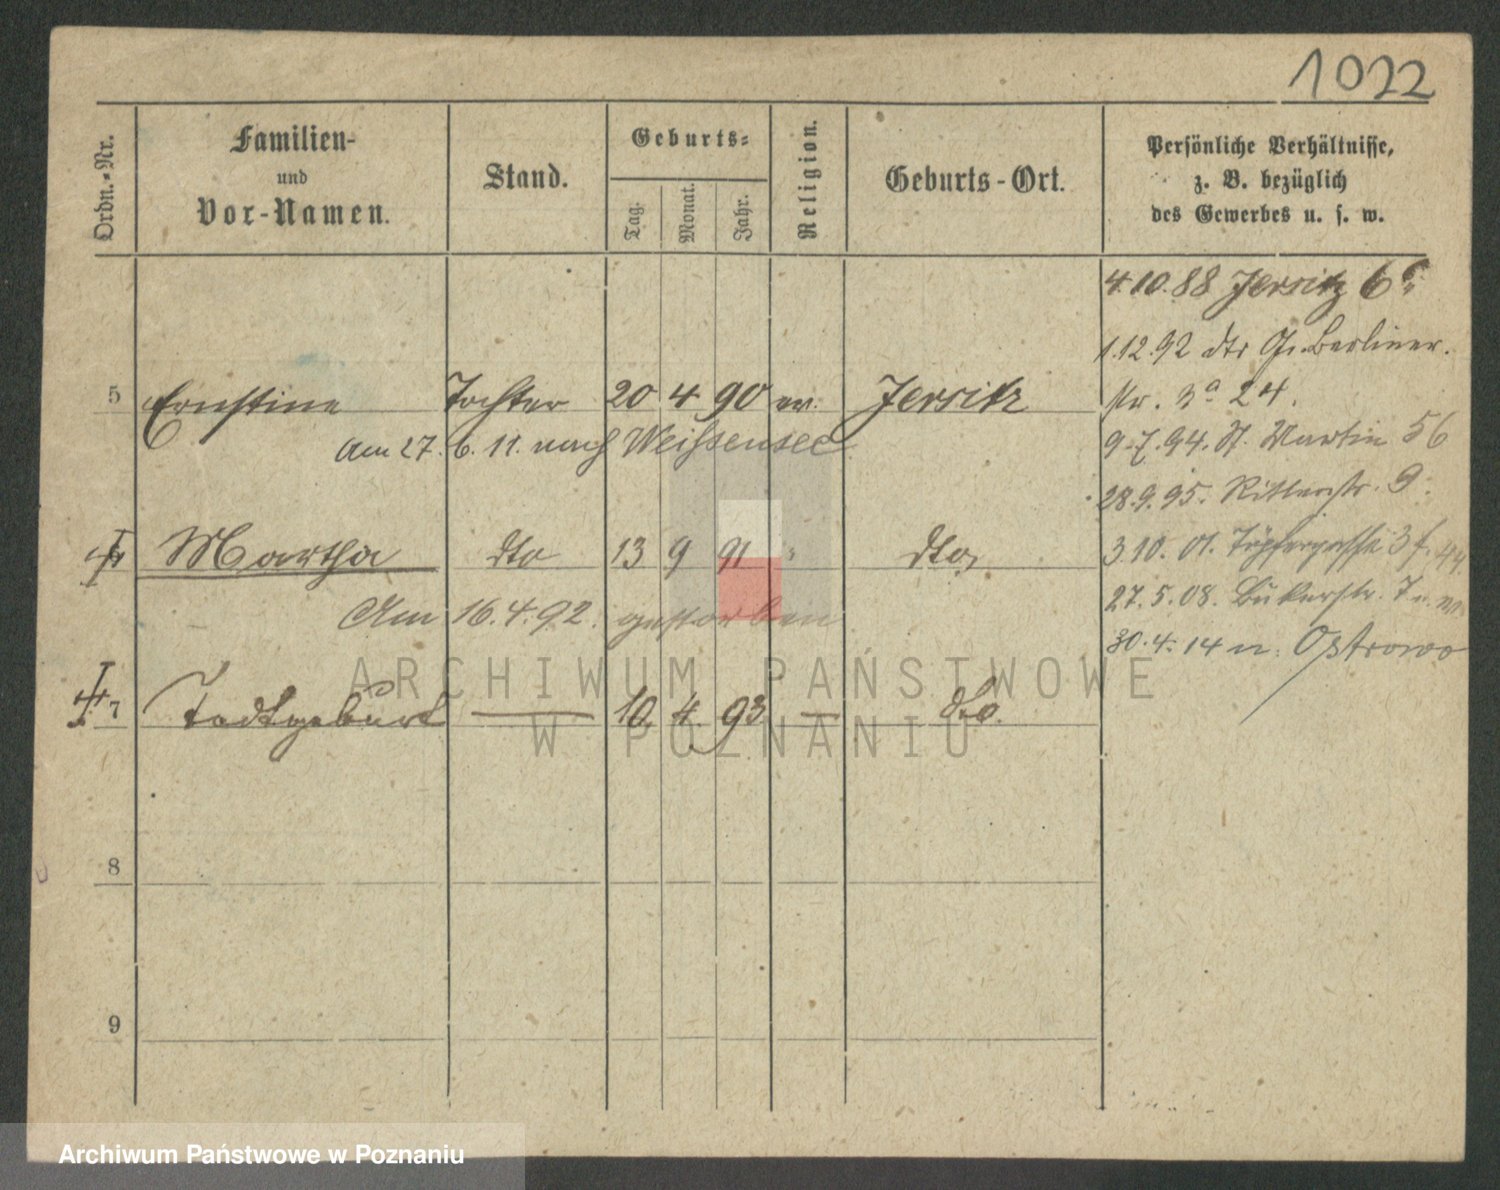 1022
Ordn.-Nr.
Familien-
und
Vor-Namen.
Stand.
Geburts-
Tag.
Monat.
Jahr.
Religion.
Geburts-Ort.
Persönliche Verhältnisse,
z. B. bezüglich
des Gewerbes u. s. w.
4.10.88 Jersitz 6
1.12.92 dto Gr. Berliner.
str. 3a 24.
5 Ernstine Tochter 20 4 90 ev. Jersitz
Am 27. 6. 11. nach Weissensee
9.7.94. St. Martin 56
28.9.95. Ritterstr. 9.
Martha dto 13 9 91 " dto
3.10.01. Töpfergasse 3
Am 16.4.92. gestorben
27.5.08. Bükerstr. 7
30.4.14 n. Ostrowo
7 Todtgeburt — 10 4. 93 — dto.
8
9
ARCHIWUM PAŃSTWOWE
W POZNANIU
Archiwum Państwowe w Poznaniu